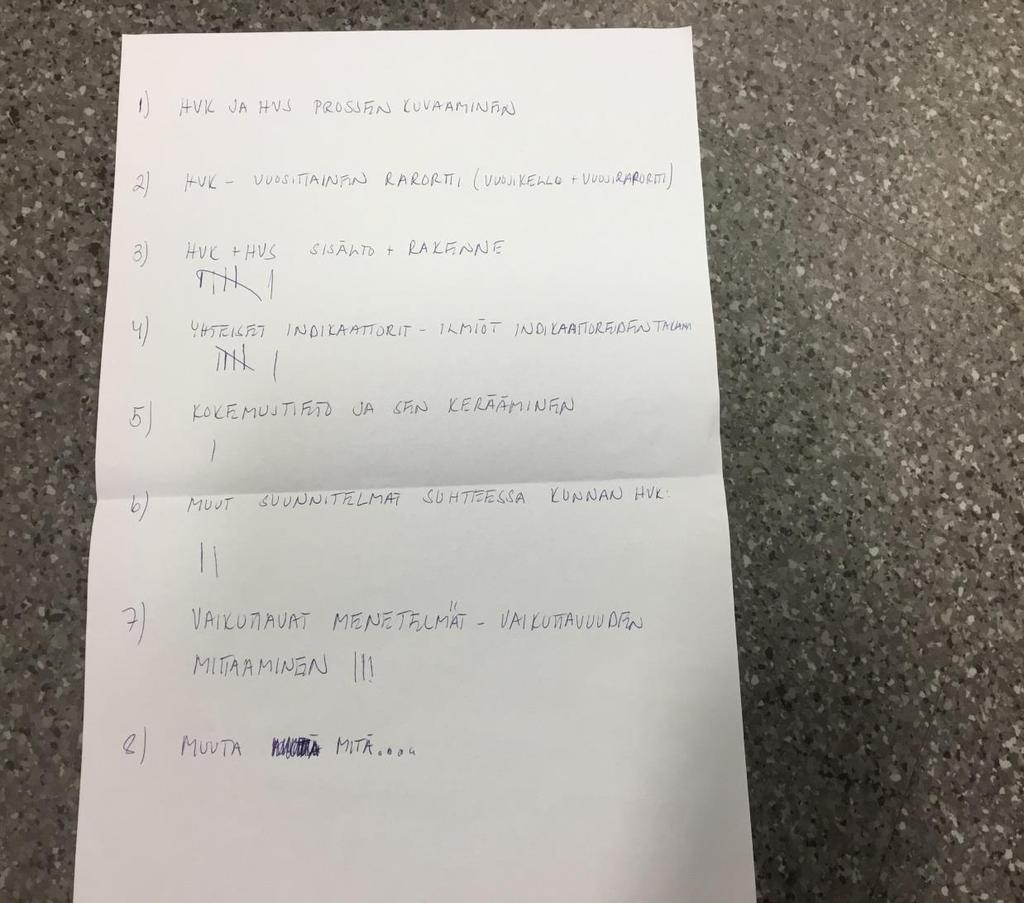 1) HVK JA HVS PROSSEN KUVAAMINEN
2) HVK - VUOSITTAINEN RAPORTTI (VUOSIKELLO + VUOSIRAPORTTI)
3) HVK + HVS SISÄLTÖ + RAKENNE
4) YHTEISET INDIKAATTORIT - ILMIÖT INDIKAATTOREIDEN TAKANA
5) KOKEMUSTIETO JA SEN KERÄÄMINEN
6) MUUT SUUNNITELMAT SUHTEESSA KUNNAN HVK:
7) VAIKUTTAVAT MENETELMÄT - VAIKUTTAVUUDEN
MITTAAMINEN |||
8) MUUTA MITÄ....